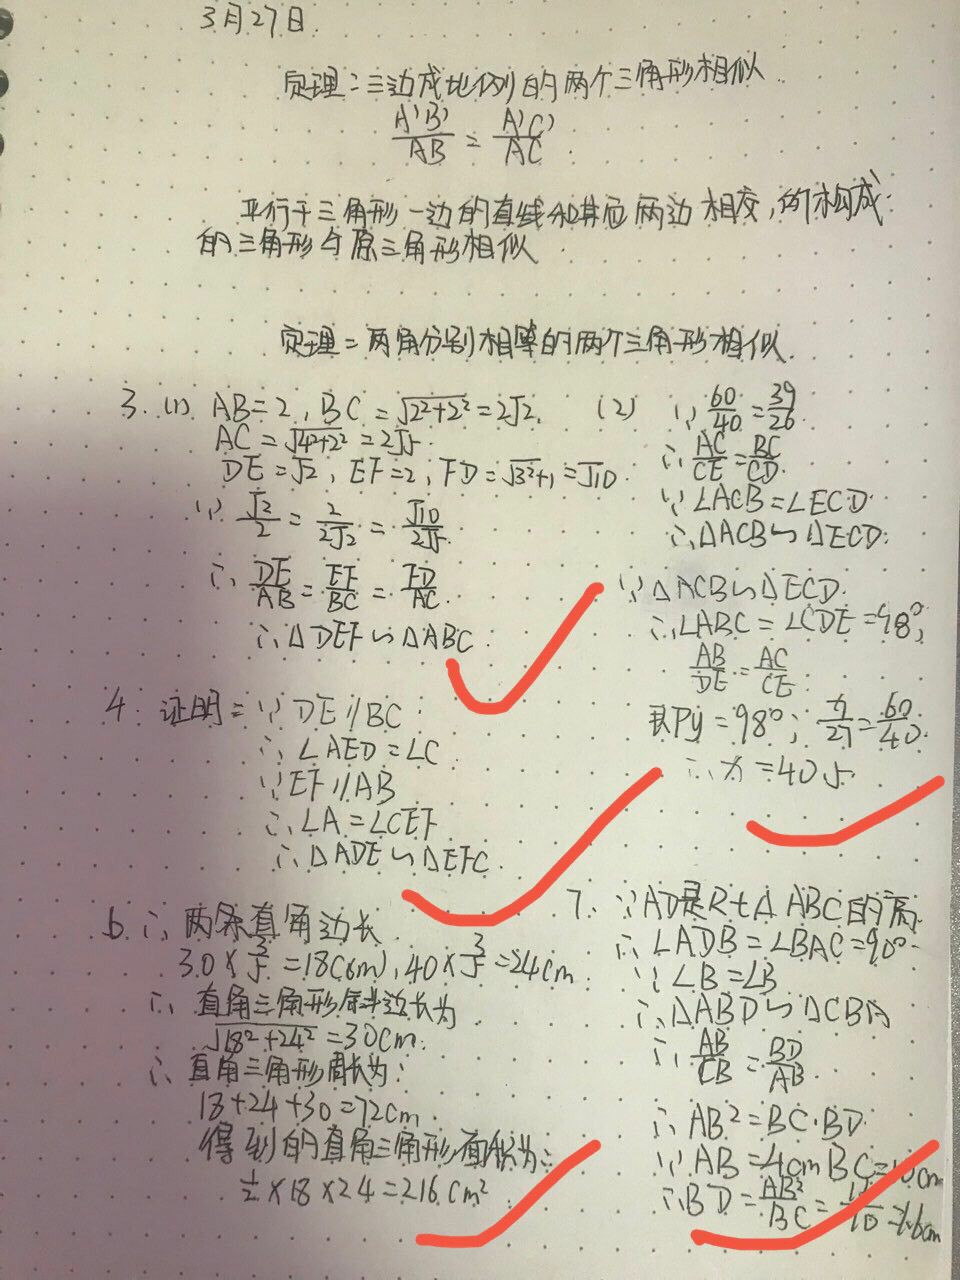 3月27日
定理:三边成比例的两个三角形相似
A'B'/AB = A'C'/AC
平行于三角形一边的直线和其它两边相交,所构成
的三角形与原三角形相似
定理:两角分别相等的两个三角形相似.
3.(1) AB=2, BC=√(2²+2²)=2√2,
AC=√(4²+2²)=2√5.
DE=√2, EF=2, FD=√(3²+1)=√10
∵ √2/2 = 2/2√2 = √10/2√5
∴ DE/AB = EF/BC = FD/AC.
∴△DEF∽△ABC
(2) ∵ 60/40 = 39/26
∴ AC/CE = BC/CD
∵∠ACB=∠ECD
∴△ACB∽△ECD
∵△ACB∽△ECD
∴∠ABC=∠CDE=98°,
AB/DE = AC/CE
则y=98°, /27 = 60/40
∴x=40.5
4. 证明:∵DE∥BC
∴∠AED=∠C
∵EF∥AB
∴∠A=∠CEF
∴△ADE∽△EFC
6.∴两条直角边长
30×3/5=18(cm),40×3/5=24cm
∴直角三角形斜边长为
√(18²+24²)=30cm.
∴直角三角形周长为:
18+24+30=72cm
得到的直角三角形面积为:
1/2×18×24=216cm²
7. ∵AD是Rt△ABC的高
∴∠ADB=∠BAC=90°
∵∠B=∠B
∴△ABD∽△CBA
∴ AB/CB = BD/AB
∴AB²=BC·BD
∵AB=4cm BC=10cm
∴BD = AB²/BC = /10 = 1.6cm